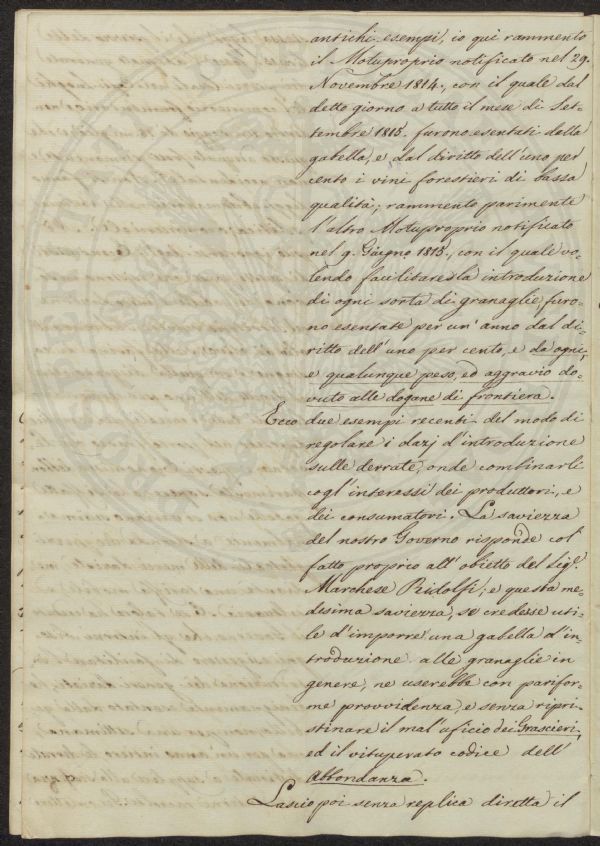 antichi esempi, io qui rammento
il Motuproprio notificato nel 29.
Novembre 1814., con il quale dal
detto giorno a tutto il mese di Set-
tembre 1815. furono esentati dalla
gabella, e dal diritto dell'uno per
cento i vini forestieri di bassa
qualità; rammento parimente
l'altro Motuproprio notificato
nel 9. Giugno 1815., con il quale vo-
lendo facilitare la introduzione
di ogni sorta di granaglie, furo-
no esentate per un'anno dal di-
ritto dell'uno per cento, e da ogni,
e qualunque peso, ed aggravio do-
vuto alle dogane di frontiera.
Ecco due esempi recenti del modo di
regolare i dazj d'introduzione
sulle derrate, onde combinarli
cogl'interessi dei produttori, e
dei consumatori. La saviezza
del nostro Governo risponde col
fatto proprio all'obietto del Sig.
Marchese Ridolfi; e questa me-
desima saviezza, se credesse uti-
le d'imporre una gabella d'in-
troduzione alle granaglie in
genere, ne userebbe con parifor-
me provvidenza, e senza ripri-
stinare il mal'uficio dei Grascieri,
ed il vituperato codice dell'
Abbondanza.
Lascio poi senza replica diretta il